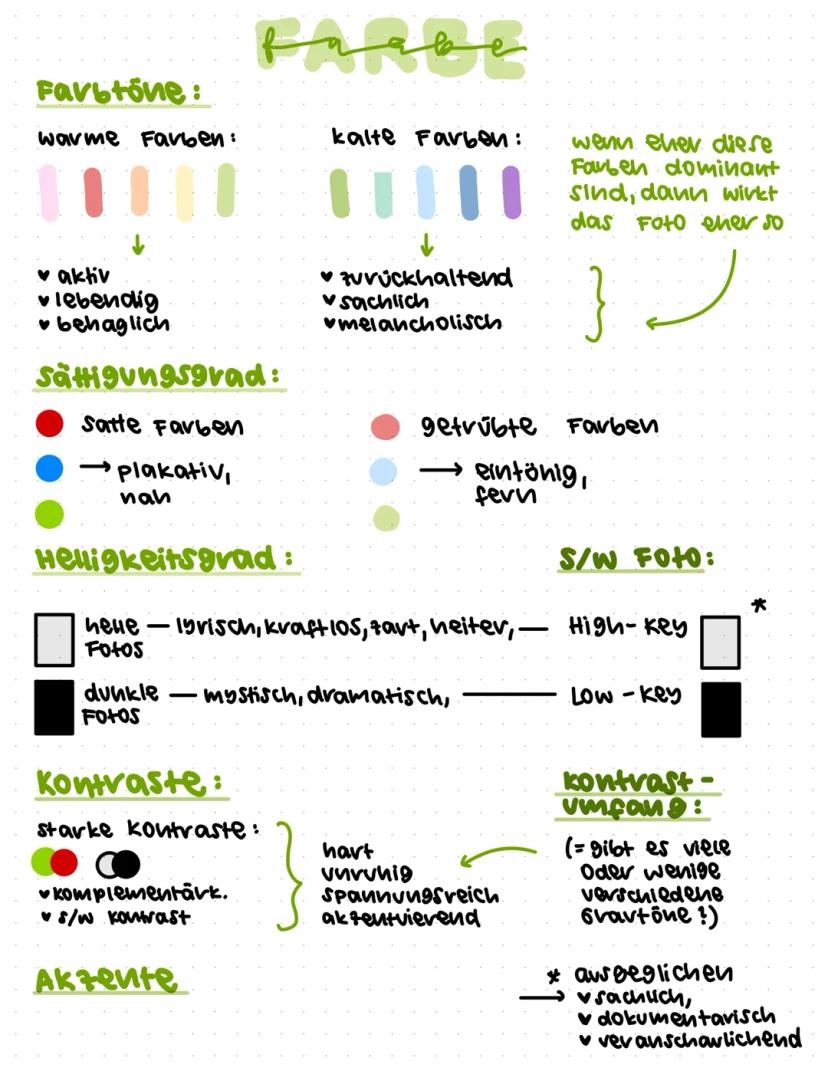 FARBE
farbe
Farbtöne:
warme Farben:
kalte Farben:
wenn eher diese
Farben dominant
sind, dann wirkt
das Foto eher so
aktiv
lebendig
behaglich
zurückhaltend
sachlich
melancholisch
Sättigungsgrad:
satte Farben
→ plakativ,
nah
getrübte Farben
→ eintönig,
fern
Helligkeitsgrad:
S/W Foto:
helle
Fotos
— lyrisch, kraftlos, zart, heiter, —
High-Key
*
dunkle
Fotos
— mystisch, dramatisch, —
Low-Key
Kontraste:
Kontrast-
umfang:
starke Kontraste:
komplementärk.
s/w Kontrast
hart
unruhig
spannungsreich
akzentuierend
(= gibt es viele
oder wenige
verschiedene
Grautöne?)
Akzente
* ausgeglichen
→ sachlich,
dokumentarisch
veranschaulichend